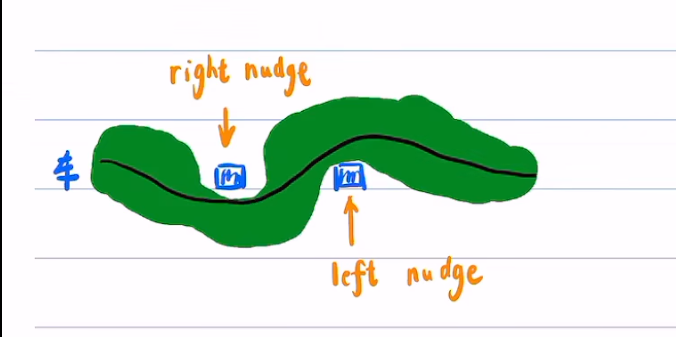 right nudge
车
m
m
left nudge